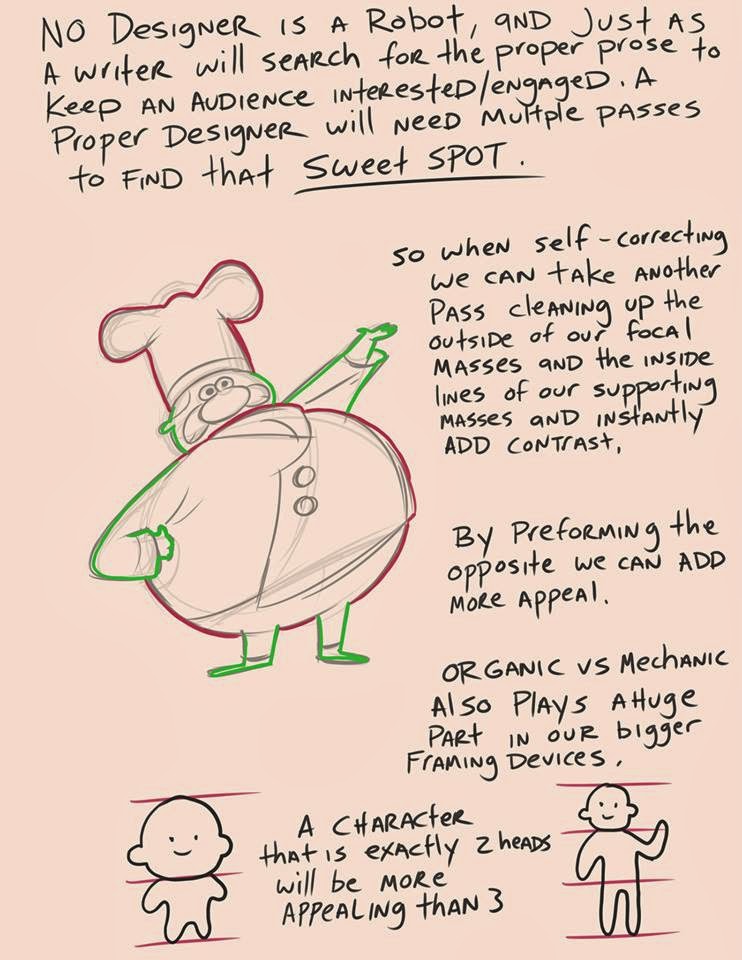 No Designer is a Robot, and just as
a writer will search for the proper prose to
keep an audience interested/engaged. A
Proper Designer will need multple passes
to find that Sweet Spot.
So when self-correcting
we can take another
pass cleaning up the
outside of our focal
masses and the inside
lines of our supporting
masses and instantly
add contrast.
By preforming the
opposite we can add
more appeal.
Organic vs Mechanic
Also plays a huge
part in our bigger
framing devices.
A character
that is exactly 2 heads
will be more
appealing than 3